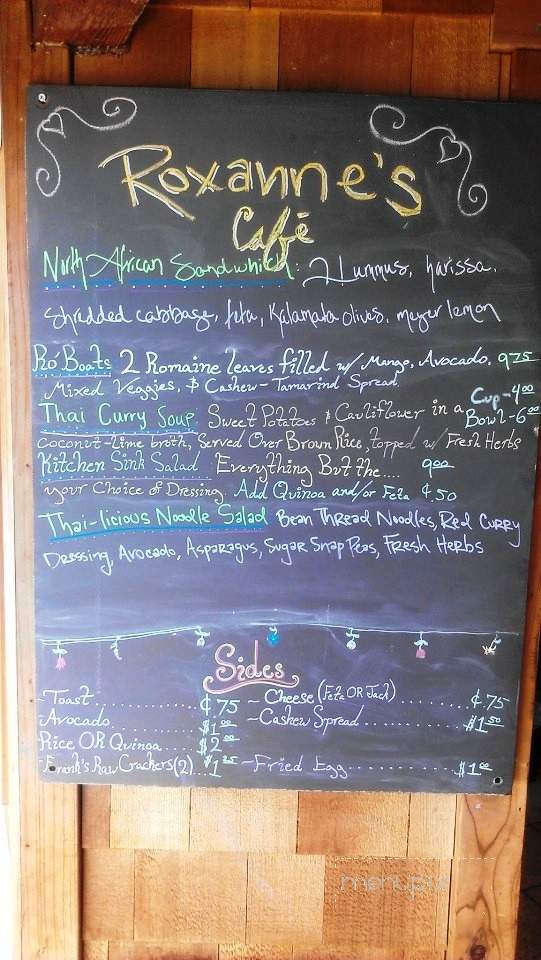 Roxanne's
Café
North African Sandwhich: Hummus, harissa,
Shredded cabbage, feta, Kalamata olives, meyer lemon
Ro' Boats 2 Romaine leaves filled w/ Mango, Avocado, 9 75
Mixed Veggies, & Cashew-Tamarind Spread. Cup-4 00
Thai Curry Soup Sweet Potatoes & Cauliflower in a Bowl-6 00
Coconut-lime broth, Served Over Brown Rice, topped w/ Fresh Herbs
Kitchen Sink Salad Everything But the.... 9 00
your Choice of Dressing Add Quinoa and/or Feta ¢50
Thai-licious Noodle Salad Bean Thread Noodles, Red Curry
Dressing, Avocado, Asparagus, Sugar Snap Peas, Fresh Herbs
Sides
Toast......... ¢75 - Cheese (Feta OR Jack)....... ¢.75
Avocado......... $1 00 - Cashew Spread........... $1 50
Rice OR Quinoa.... $2 00
Frank's Raw Crackers (2)...$1 25 - Fried Egg............ $1 00
menupix